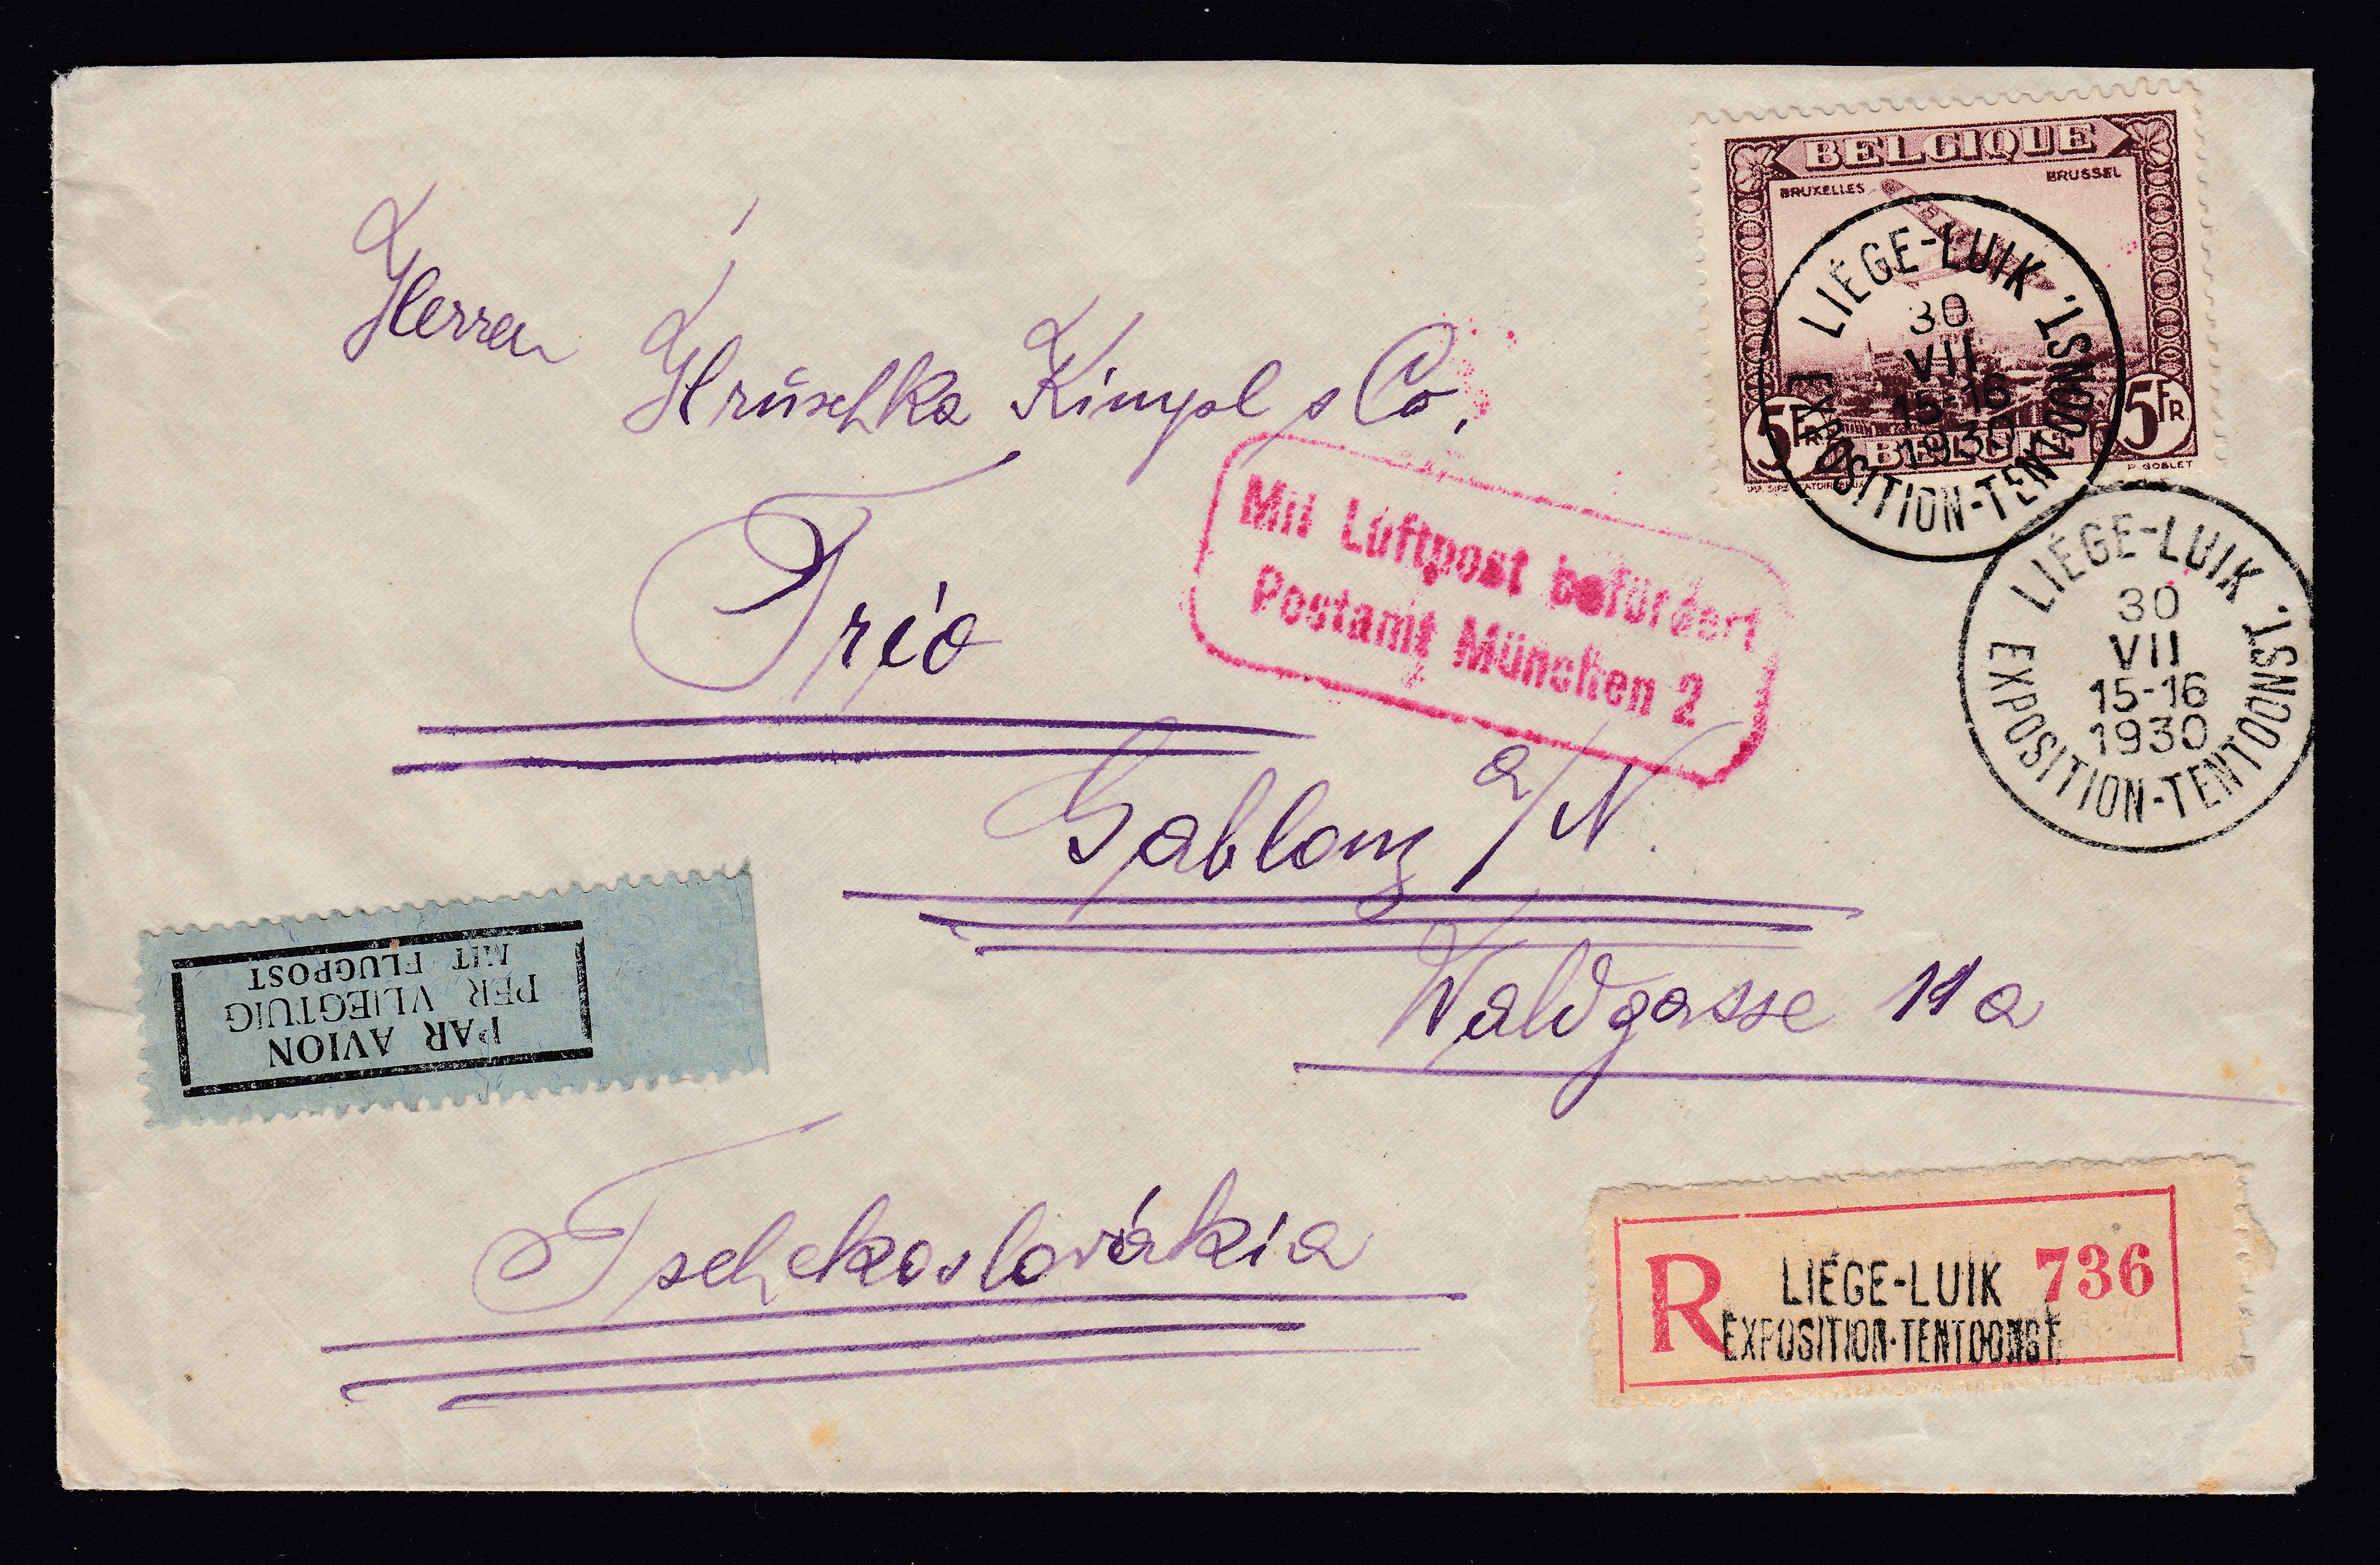 BELGIQUE
BRUXELLES BRUSSEL
5FR 5FR
BELGIË
P. GOBLET
LIÉGE-LUIK
30
VII
15-16
1930
EXPOSITION-TENTOONST.
LIÉGE-LUIK
30
VII
15-16
1930
EXPOSITION-TENTOONST.
Herren
Hrŭschka Kimpl & Co.
Mit Luftpost befördert
Postamt München 2
Trio
Gablonz a/N.
Waldgasse 11a
PAR AVION
PER VLIEGTUIG
MIT FLUGPOST
Tschekoslovákia
R LIÉGE-LUIK 736
EXPOSITION-TENTOONST